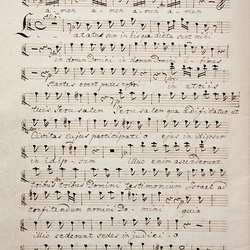 a men a men a men a men
Allo
Lætatus sum in his quæ dicta sunt mihi
in domum Domini in domum Domini i bimus
Stantes erant pedes nostri in atriis
tuis Jerusalem Jerusalem quæ ædificatur ut
Civitas cujus participatio ejus in idipsum
in idipsum illuc enim ascenderunt
tribus tribus Domini Testimonium Israel ad
confitendum nomini Domini quia
illic sederunt sedes in judicio